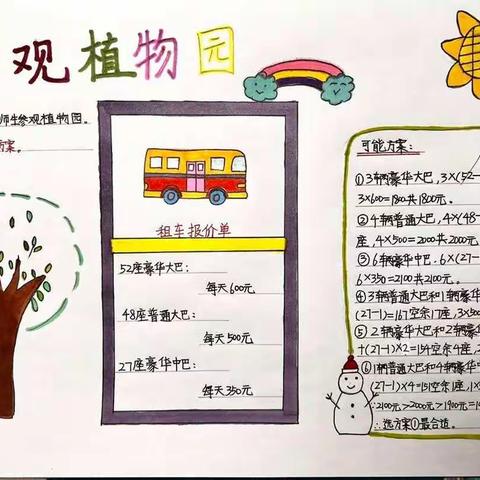 观植物园
师生参观植物园。
方案。
租车报价单
52座豪华大巴:
每天600元
48座普通大巴:
每天500元
27座豪华中巴:
每天350元
可能方案:
①3辆豪华大巴,3×(52-
3×600=1800共1800元。
②4辆普通大巴,4×(48-
座,4×500=2000共2000元
③6辆豪华中巴.6×(27-
6×350=2100共2100元。
④3辆普通大巴和1辆豪华
(27-1)=167空余17座,3×500
⑤2辆豪华大巴和2辆豪华
+(27-1)×2=154空余4座,
⑥1辆普通大巴和4辆豪华中
(27-1)×4=151空余1座,1×
∵2100元>2000元>1900元=1
∴选方案①最合适。